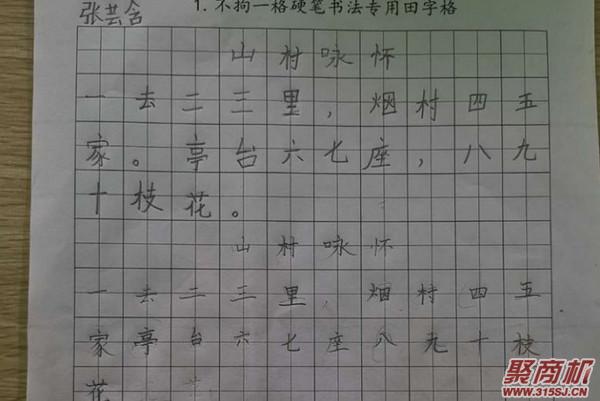 张芸含
1.不拘一格硬笔书法专用田字格
山村咏怀
一去二三里，烟村四五
家。亭台六七座，八九
十枝花。
山村咏怀
一去二三里，烟村四五
家亭台六七座八九十枝
花
聚商机
www.315SJ.CN